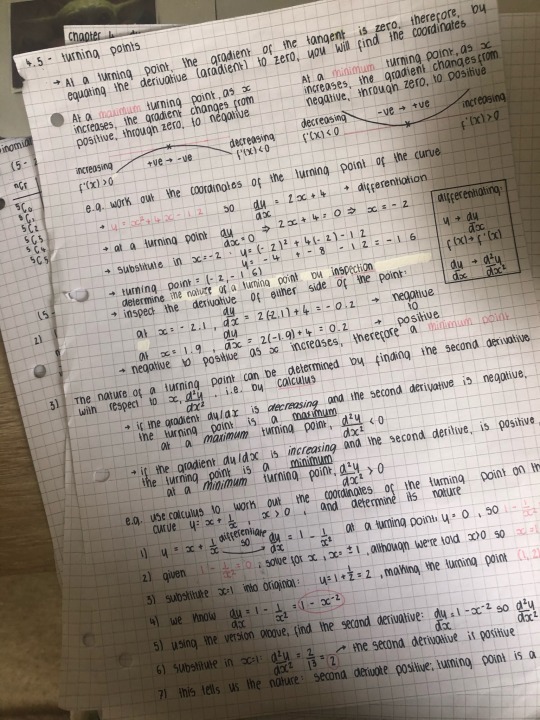 chapter 4
4.5 - turning points
→ At a turning point, the gradient of the tangent is zero, therefore, by
equating the derivative (gradient) to zero, you will find the coordinates
At a maximum turning point, as x
increases, the gradient changes from
positive, through zero, to negative
At a minimum turning point, as x
increases, the gradient changes from
negative, through zero, to positive
increasing
f'(x) > 0
+ve → -ve
decreasing
f'(x) < 0
decreasing
f'(x) < 0
-ve → +ve
increasing
f'(x) > 0
e.g. work out the coordinates of the turning point of the curve
→ y = x² + 4x - 12 so dy/dx = 2x + 4 → differentiation
→ at a turning point dy/dx = 0 ⇒ 2x + 4 = 0 ⇒ x = -2
→ substitute in x = -2 · y = (-2)² + 4(-2) - 12
y = -4 + -8 - 12 = -16
→ turning point = (-2, -16)
differentiating:
y → dy/dx
f(x) → f'(x)
dy/dx → d²y/dx²
determine the nature of a turning point by inspection
→ inspect the derivative of either side of the point:
at x = -2.1, dy/dx = 2(-2.1) + 4 = -0.2 → negative
to
at x = 1.9, dy/dx = 2(-1.9) + 4 = 0.2 → positive
→ negative to positive as x increases, therefore a minimum point
The nature of a turning point can be determined by finding the second derivative
with respect to x, d²y/dx². i.e. by calculus
→ if the gradient dy/dx is decreasing and the second derivative is negative,
the turning point is a maximum
at a maximum turning point, d²y/dx² < 0
→ if the gradient dy/dx is increasing and the second deritive, is positive
the turning point is a minimum
at a minimum turning point, d²y/dx² > 0
e.g. use calculus to work out the coordinates of the turning point on th
curve y = x + 1/x, x > 0, and determine its nature
1) y = x + 1/x differentiate so dy/dx = 1 - 1/x² at a turning point y = 0, so 1 - 1
2) given 1 - 1/x² = 0, solve for x, x = ± 1, although we're told x>0 so x = 1
3) substitute x=1 into original: y = 1 + 1/1 = 2, making the turning point (1, 2)
4) we know dy/dx = 1 - 1/x² = 1 - x⁻²
5) using the version above, find the second derivative: dy/dx = 1 - x⁻² so d²y/dx²
6) substitute in x=1: d²y/dx² = 2/1³ = 2 → the second derivative is positive
7) this tells us the nature: second derivate positive; turning point is a
inomial
(5-
nCr
5C0
5C1
5C2
5C3
5C4
5C5
(5-
2)
3)